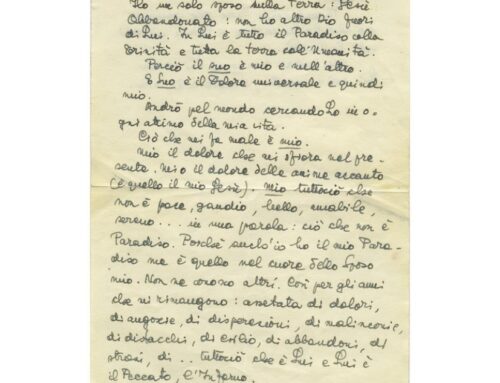 Ho un solo sposo sulla terra: Gesù
Abbandonato: non ho altro Dio fuori
di Lui. In Lui è tutto il Paradiso colla
Trinità e tutta la terra coll'Umanità.
Perciò il suo è mio e null'altro.
E Suo è il Dolore universale e quindi
mio.
Andrò pel mondo cercandoLo in o-
gni attimo della mia vita.
Ciò che mi fa male è mio.
Mio il dolore che mi sfiora nel pre-
sente. Mio il dolore delle anime accanto
(è quello il mio Gesù). Mio tuttociò che
non è pace, gaudio, bello, amabile,
sereno... in una parola: ciò che non è
Paradiso. Poiché anch'io ho il mio Para-
diso ma è quello nel cuore dello Sposo
mio. Non ne conosco altri. Così per gli anni
che mi rimangono: assetata di dolori,
di angosce, di disperazioni, di malinconie,
di distacchi, di esilio, di abbandoni, di
strazi, di .. tuttociò che è Lui e Lui è
il Peccato, l'Inferno.